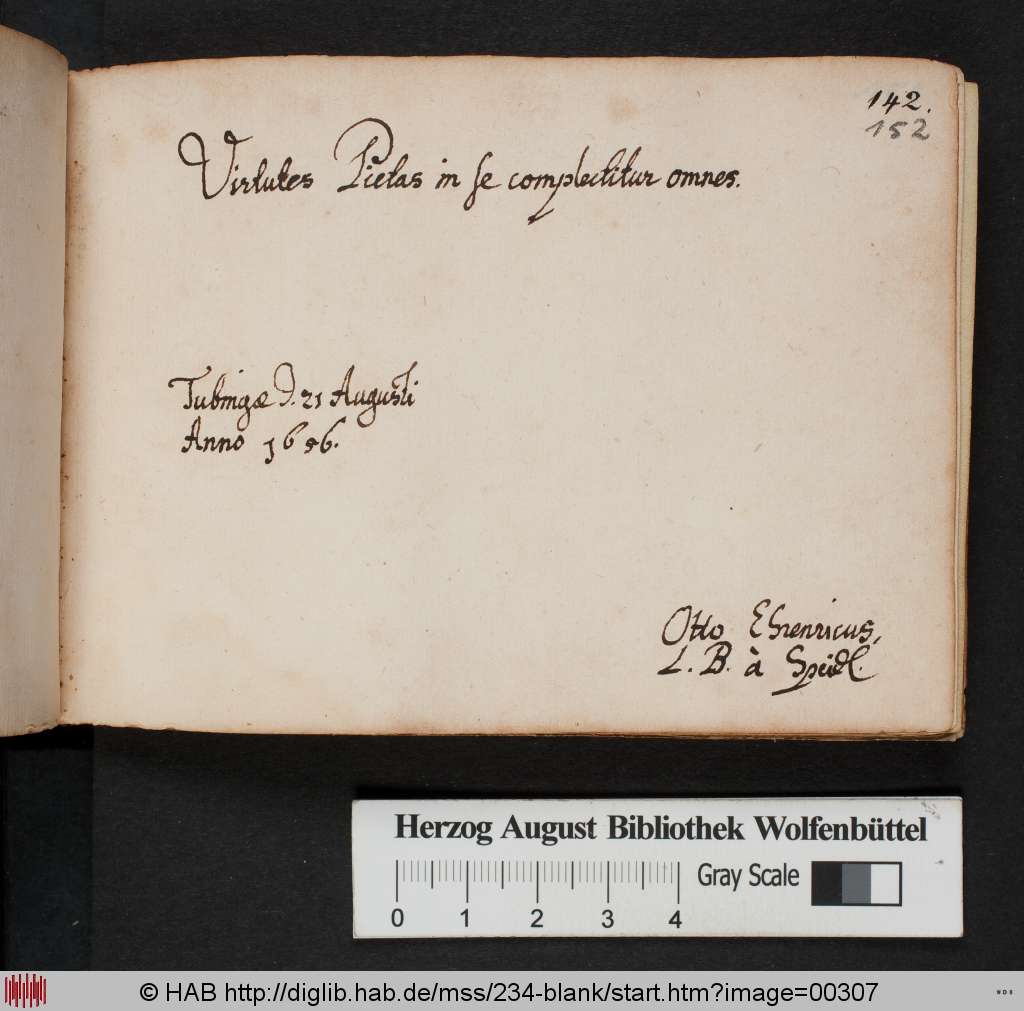 142.
152
Virtutes Pietas in se complectitur omnes.
Tubingæ d. 21 Augusti
Anno 1656.
Otto Ehrenricus,
L. B. à Speidl.
Herzog August Bibliothek Wolfenbüttel
Gray Scale
0 1 2 3 4
© HAB http://diglib.hab.de/mss/234-blank/start.htm?image=00307